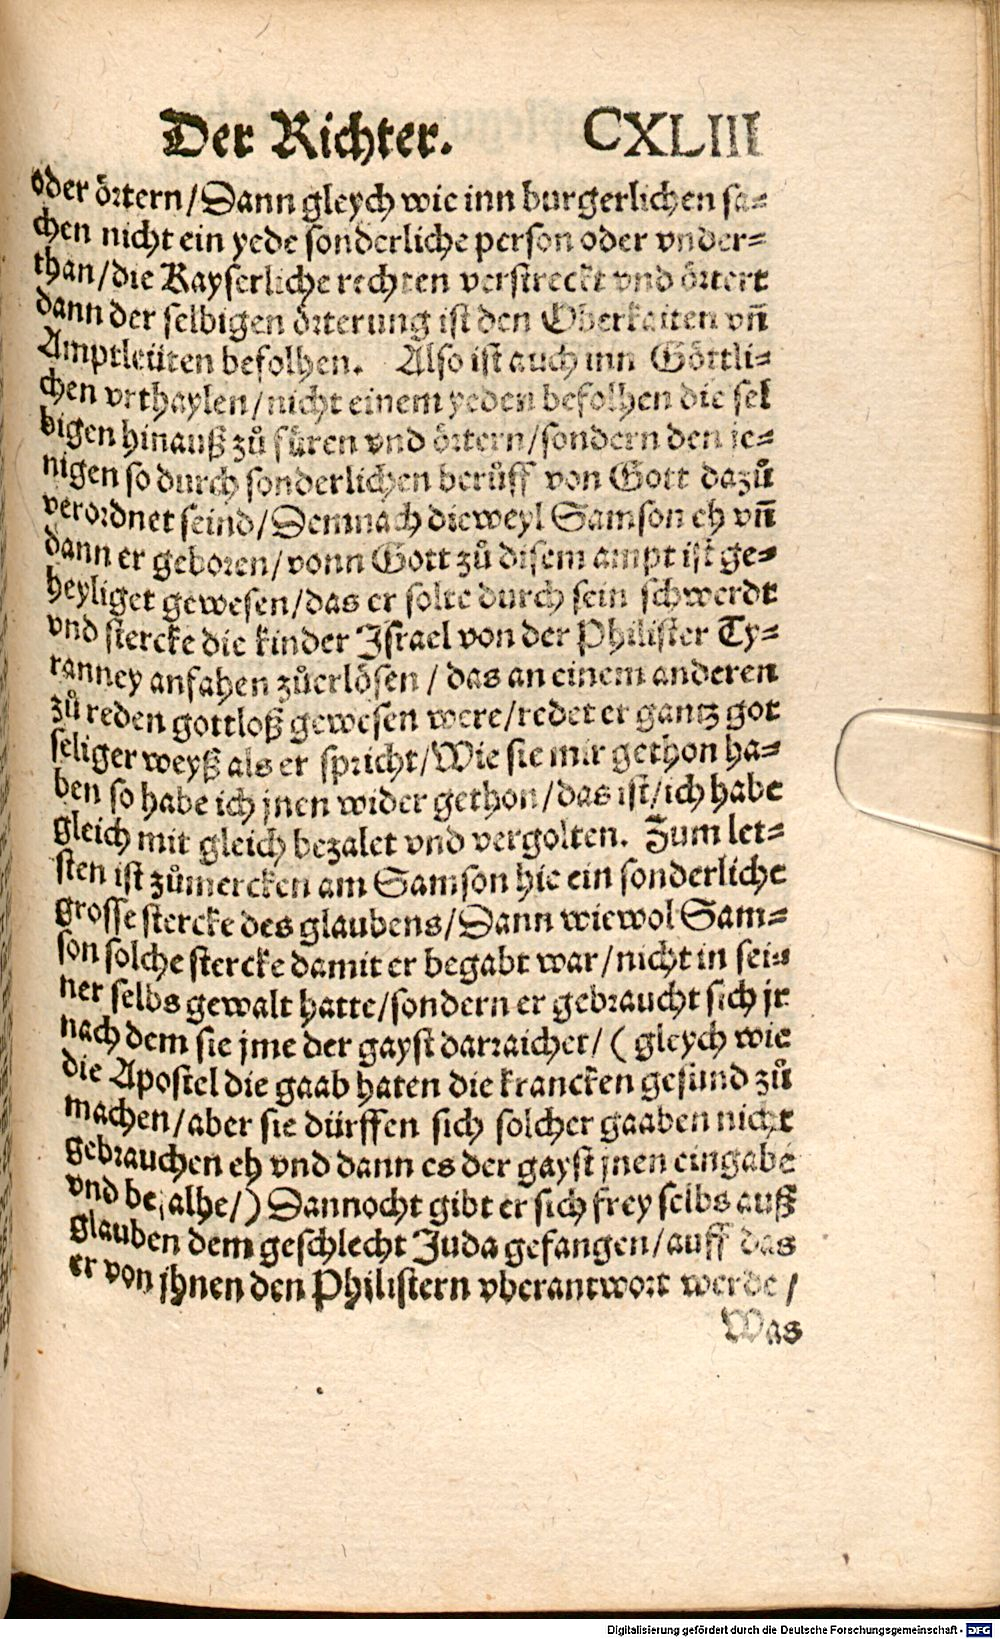 Der Richter. CXLIII
oder örtern/Dann gleych wie inn burgerlichen sa=
chen nicht ein yede sonderliche person oder vnder=
than/die Kayserliche rechten verstreckt vnd örtert
dann der selbigen örterung ist den Oberkaiten vn̄
Amptleüten befolhen. Also ist auch inn Göttli=
chen vrthaylen/nicht einem yeden befolhen die sel
bigen hinauß zů füren vnd örtern/sondern den je=
nigen so durch sonderlichen berůff von Gott dazů
verordnet seind/Demnach dieweyl Samson eh vn̄
dann er geboren/vonn Gott zů disem ampt ist ge=
heyliget gewesen/das er solte durch sein schwerdt
vnd stercke die kinder Israel von der Philister Ty=
ranney anfahen zůerlösen / das an einem anderen
zů reden gottloß gewesen were/redet er gantz got
seliger weyß als er spricht/Wie sie mir gethon ha=
ben so habe ich jnen wider gethon/das ist/ich habe
gleich mit gleich bezalet vnd vergolten. Zum let=
sten ist zůmercken am Samson hie ein sonderliche
grosse stercke des glaubens/Dann wiewol Sam=
son solche stercke damit er begabt war/nicht in sei=
ner selbs gewalt hatte/sondern er gebraucht sich jr
nach dem sie jme der gayst darraichet/ ( gleych wie
die Apostel die gaab haten die krancken gesund zů
machen/aber sie dürffen sich solcher gaaben nicht
gebrauchen eh vnd dann es der gayst jnen eingabe
vnd be alhe/) Dannocht gibt er sich frey selbs auß
glauben dem geschlecht Juda gefangen/auff das
er von jhnen den Philistern vberantwort werde /
Was
Digitalisierung gefördert durch die Deutsche Forschungsgemeinschaft - DFG